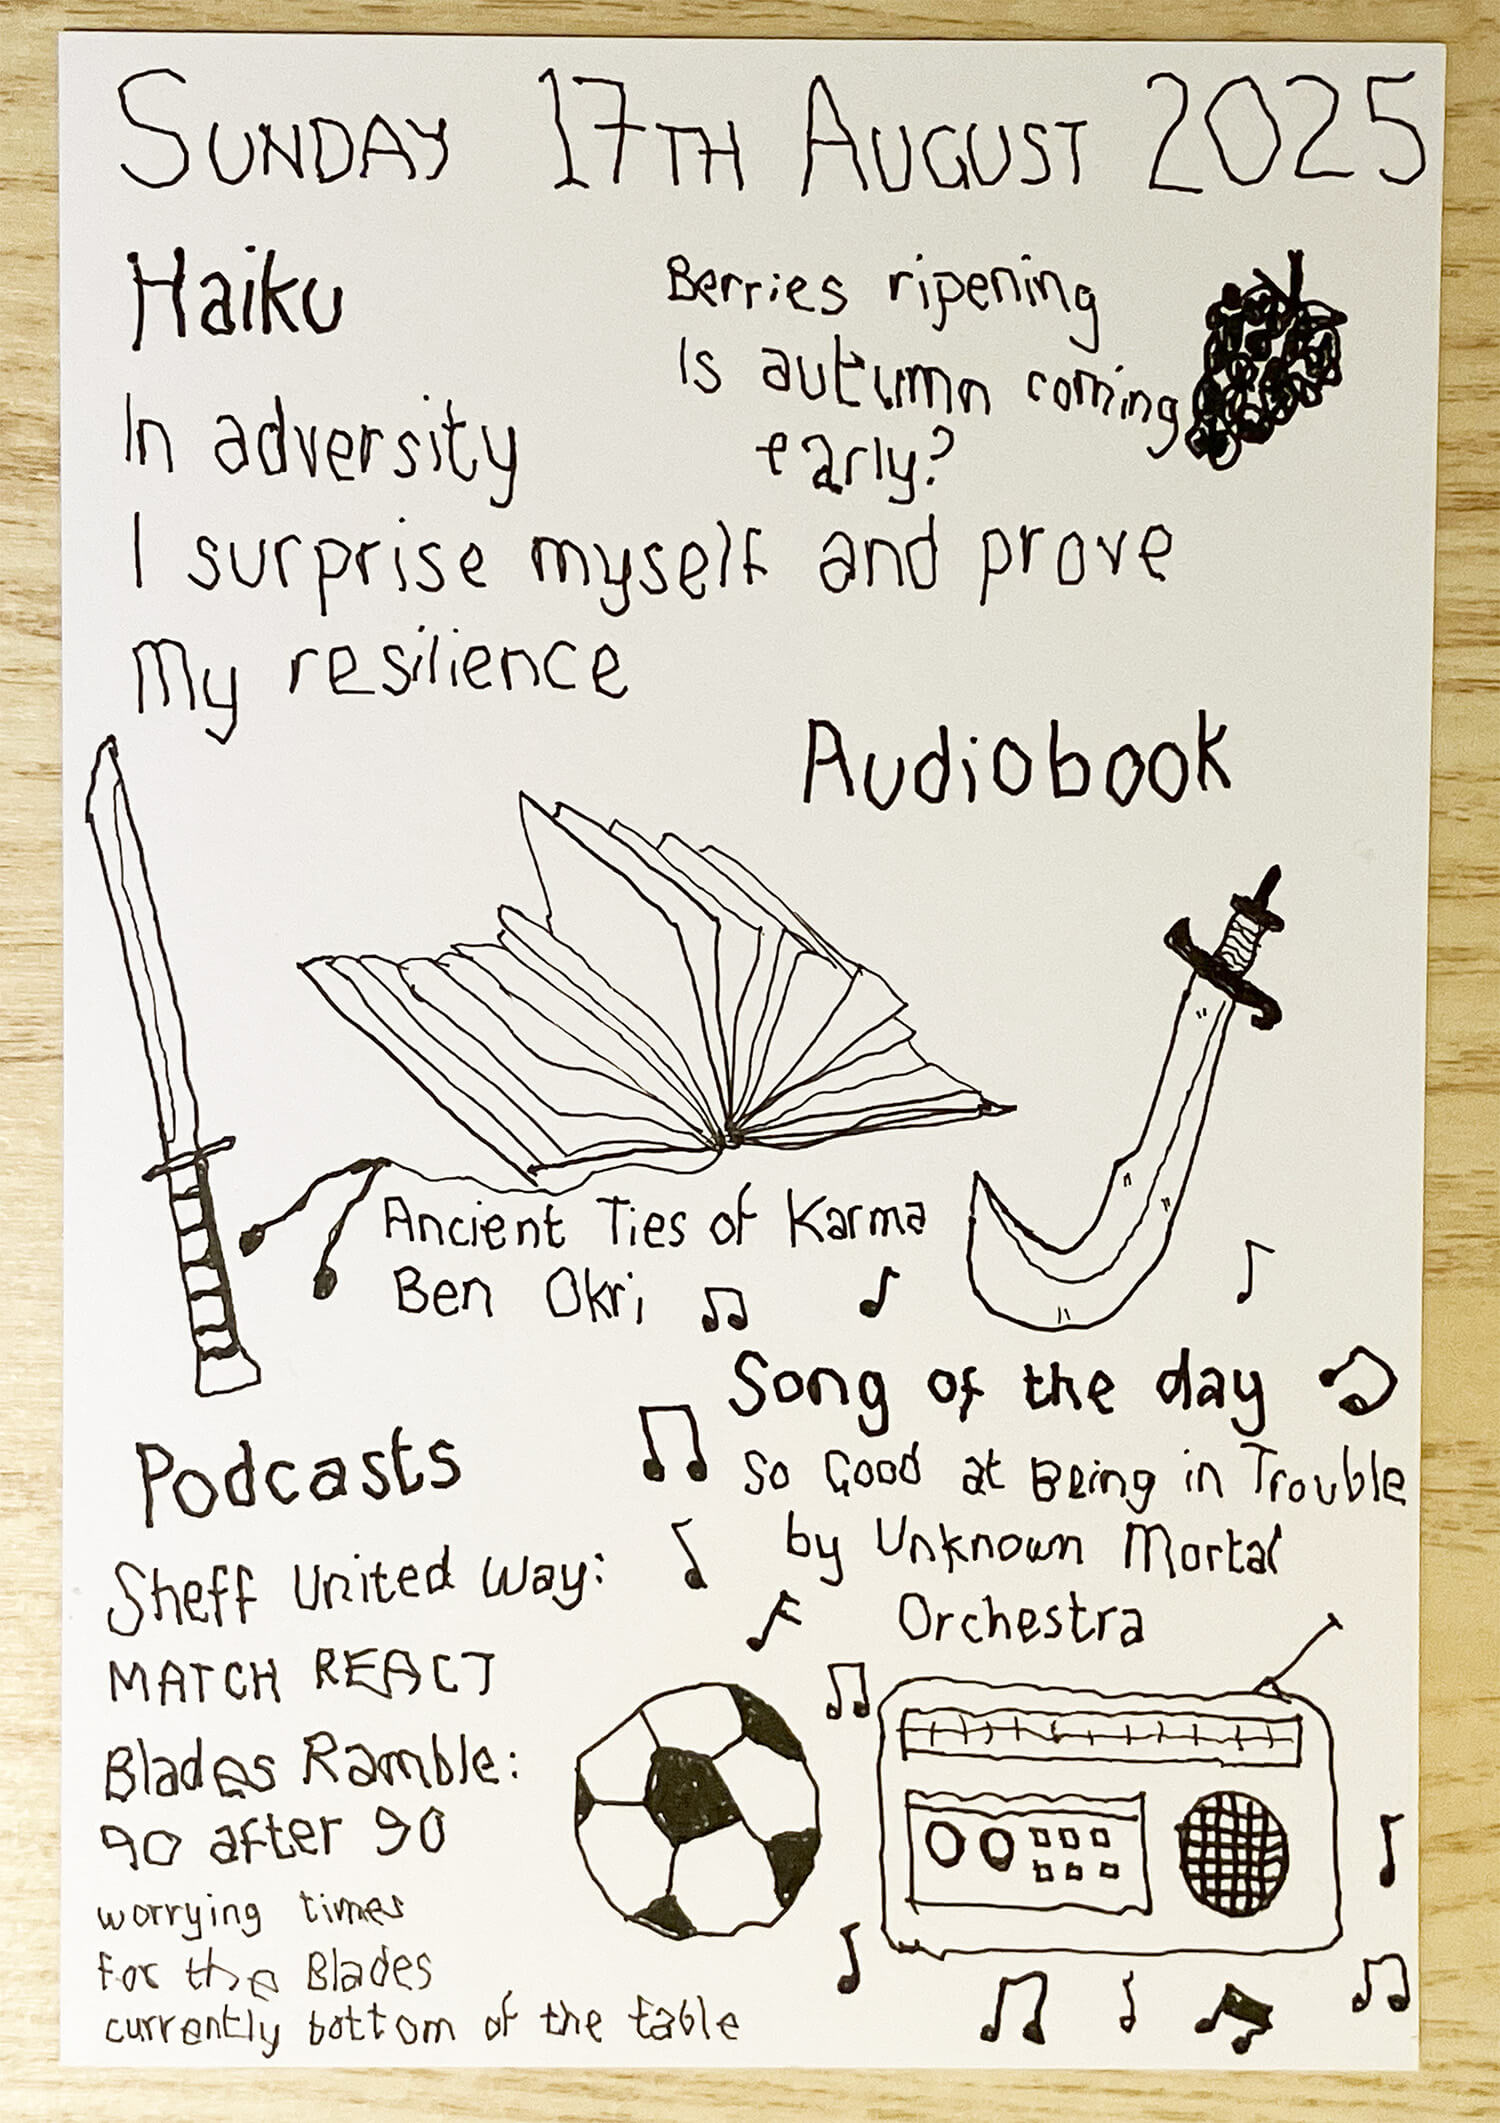 SUNDAY 17TH AUGUST 2025
Haiku
In adversity
I surprise myself and prove
My resilience
Berries ripening
Is autumn coming
early?
Audiobook
Ancient Ties of Karma
Ben Okri
Song of the day
So Good at Being in Trouble
by Unknown Mortal
Orchestra
Podcasts
Sheff United Way:
MATCH REACT
Blades Ramble:
90 after 90
worrying times
for the Blades
currently bottom of the table